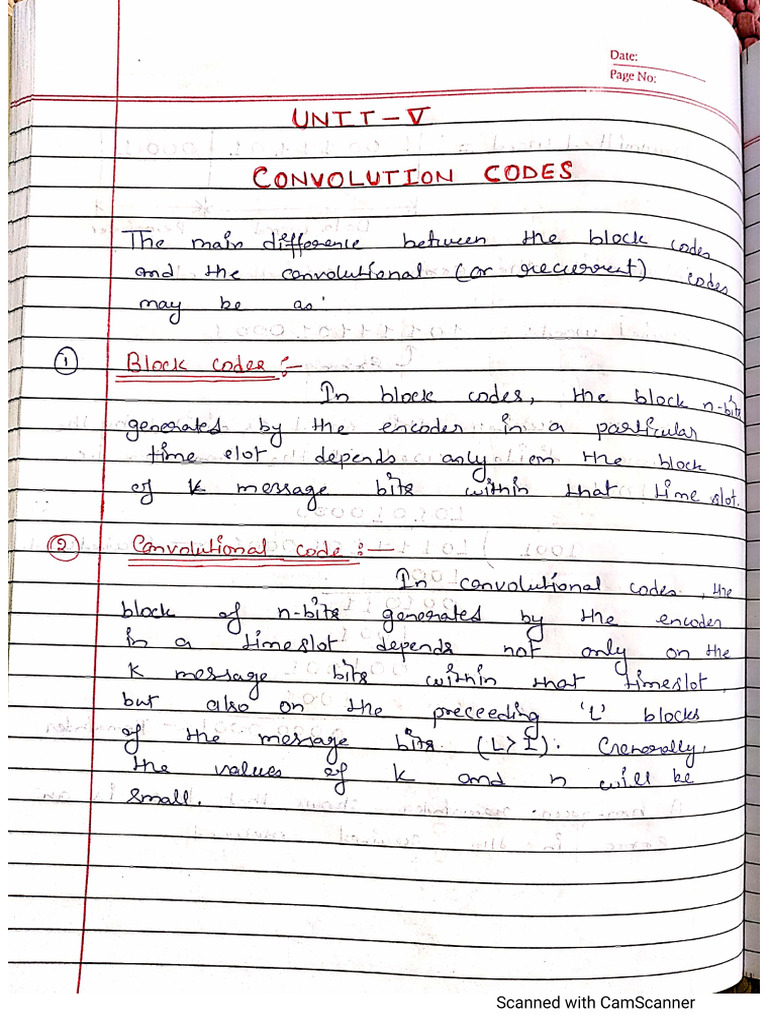 Date:
Page No:
UNIT-V
CONVOLUTION CODES
The main difference between the block codes
and the convolutional (or recurrent) codes
may be as:
① Block codes :-
In block codes, the block n-bits
generated by the encoder in a particular
time slot depends only on the block
of k message bits within that time slot.
② Convolutional code :-
In convolutional codes, the
block of n-bits generated by the encoder
in a timeslot depends not only on the
k message bits within that timeslot,
but also on the preceeding 'L' blocks
of the message bits (L>I). Generally,
the values of k and n will be
small.
Scanned with CamScanner